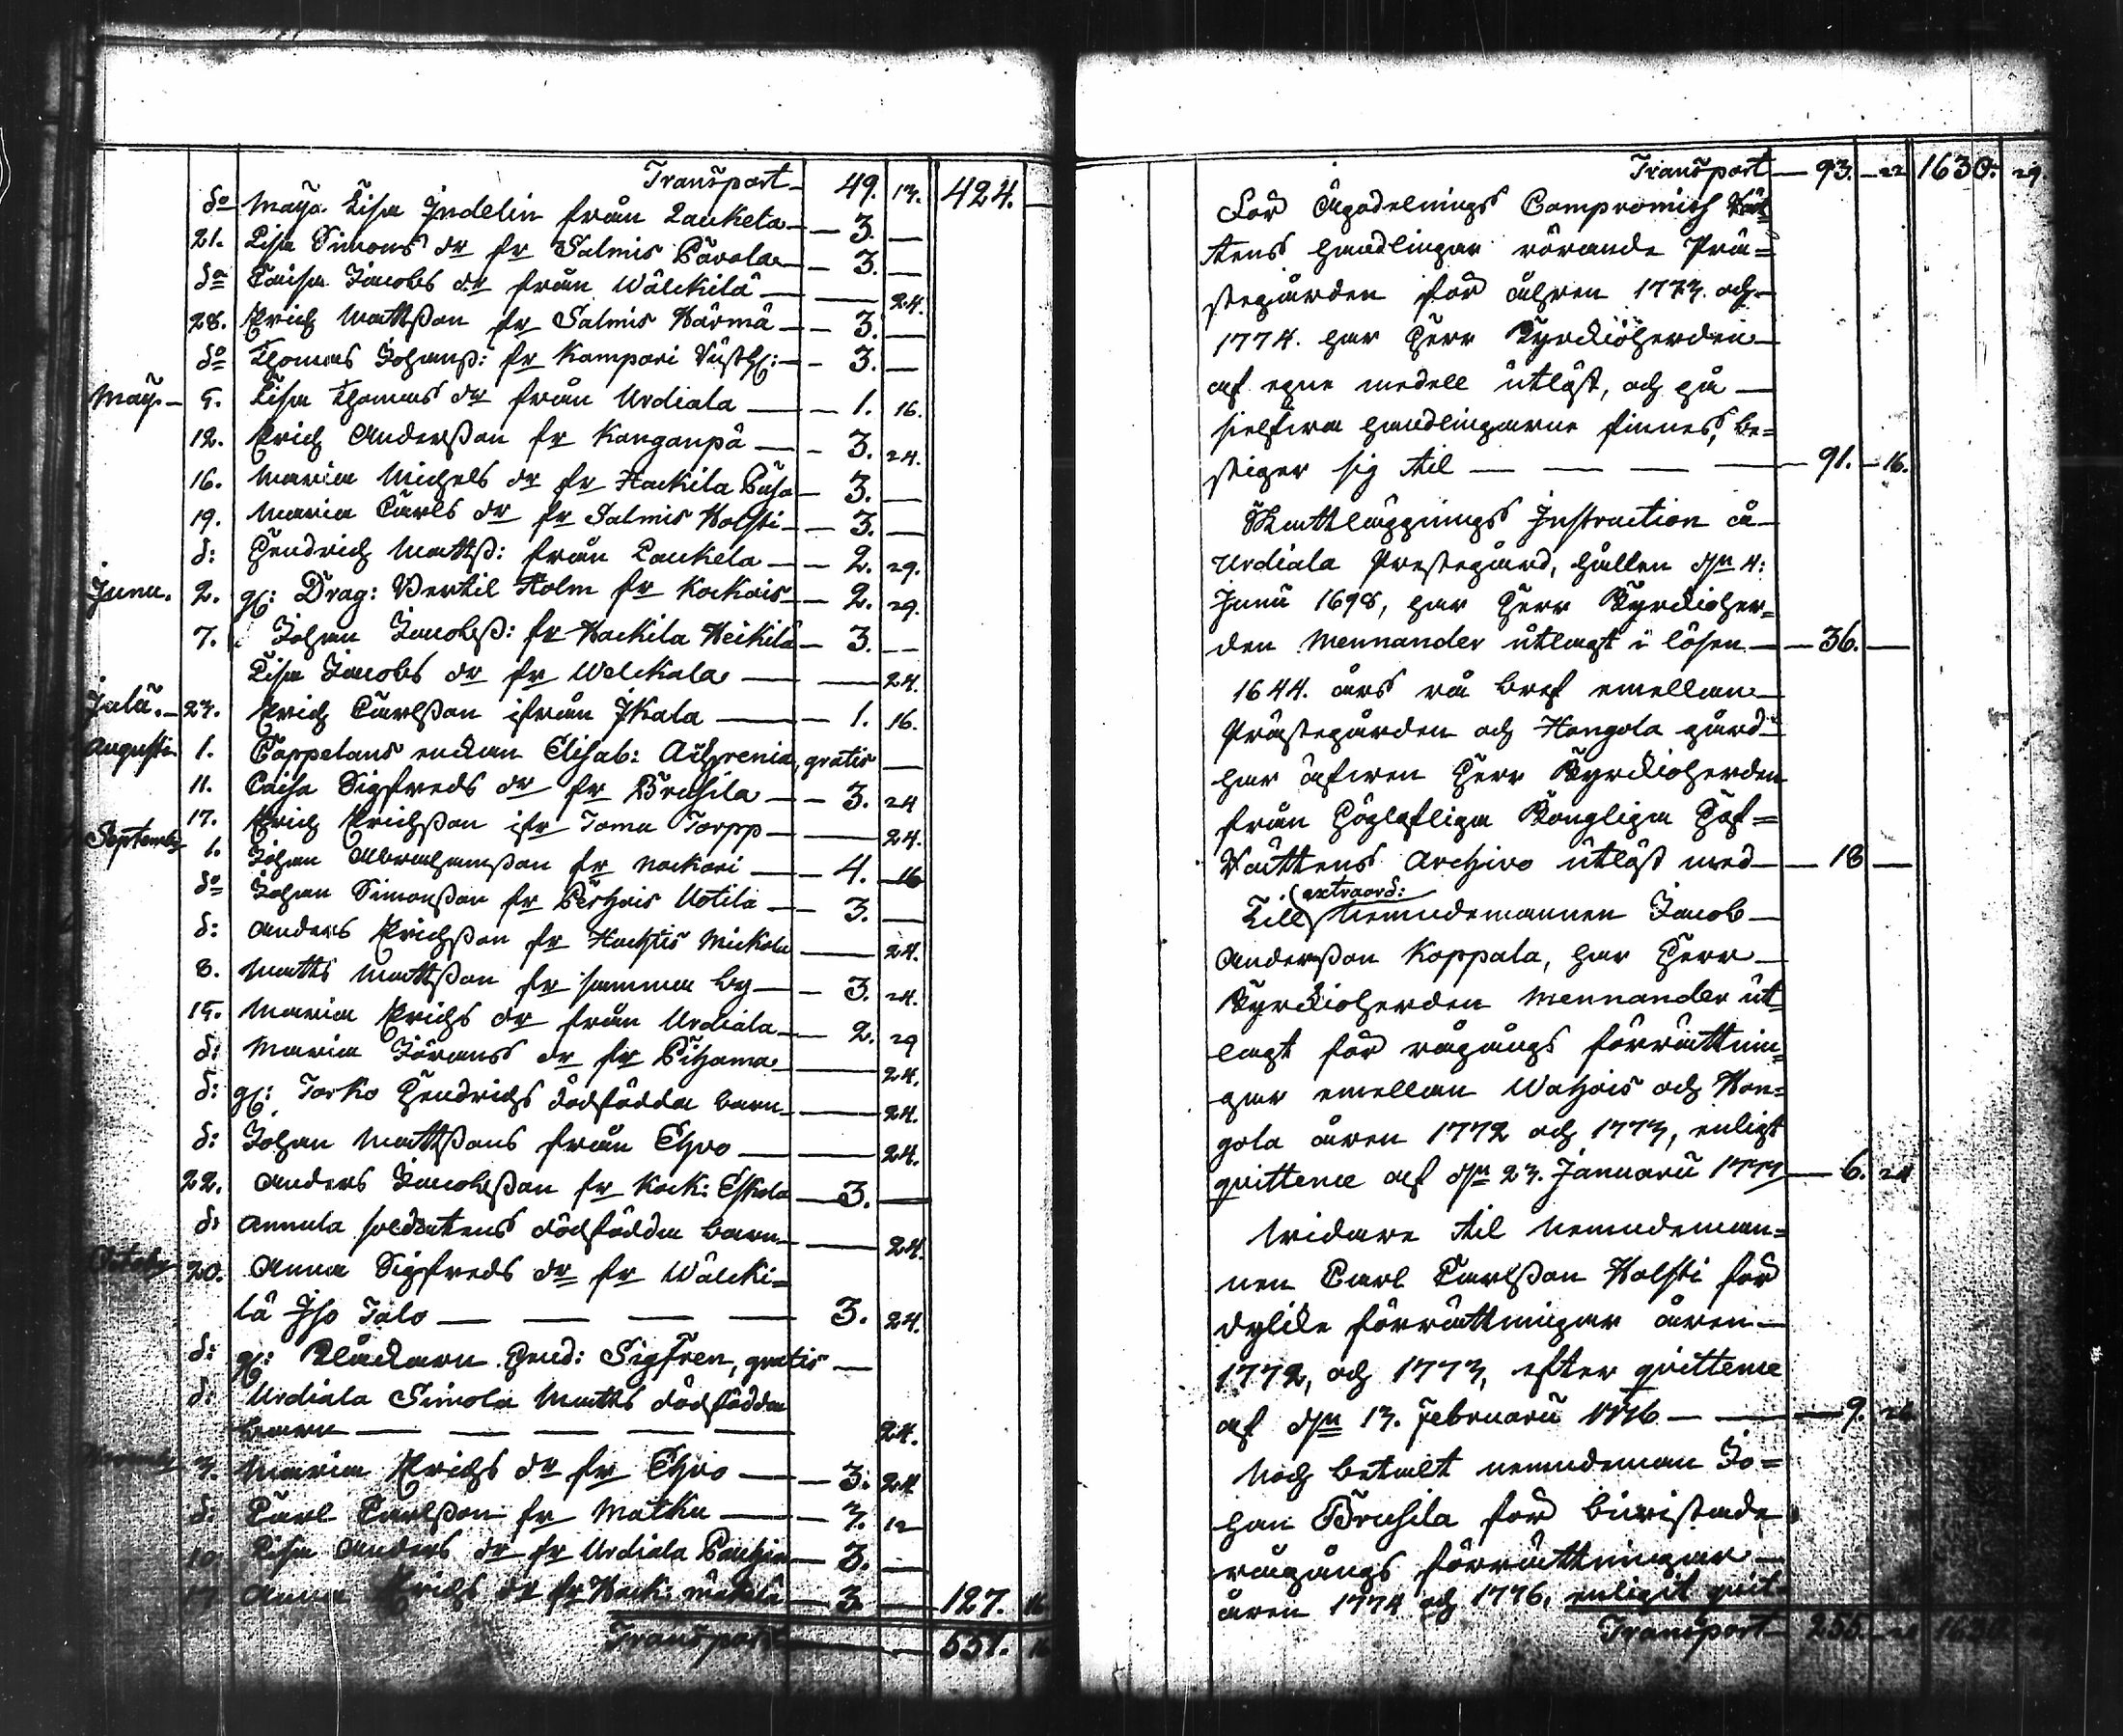 Transport 49. 13. 424.
do Maja Lisa Indelin från Laukela 3.
21. Lisa Simons dr fr Salmis Pävola 3.
do Caisa Jacobs dr från Wälckilä 24.
28. Erich Mattsson fr Salmis Härmä 3.
do Thomas Johanss: fr Kampari 3.
Maji 5. Lisa Thomas dr från Urdiala 1. 16.
12. Erich Andersson fr Kanganpä 3. 24.
16. Maria Michels dr fr Hackila 3.
19. Maria Carls dr fr Salmis Holsti 3.
d: Hendrich Mattss: från Laukela 2. 29.
Junii. 2. gl: Drag: Bertil Holm fr Kockois 2. 29.
7. Johan Jacobss: fr Hackila Heikilä 3.
Lisa Jacobs dr fr Welckala 24.
Julii. 23. Erich Carlsson ifrån Ikala 1. 16.
Augusti 1. Cappelans enckan Elisab: Achrenia, gratis
11. Caisa Sigfreds dr fr Brusila 3. 24
17. Erich Erichsson ifr Torpp 24.
September 1. Johan Abrahamsson fr Nackari 4. 16
do Johan Simonsson fr Uotila 3.
d: Anders Erichsson fr Hachtis Mickola 24.
8. Matts Mattsson fr samma by 3. 24.
15. Maria Erichs dr från Urdiala 2. 29
d: Maria Jörans dr fr 24.
d: gl: Torko Hendrichs dödfödda barn 24.
d: Johan Mattssons från 24.
22. Anders Jacobsson fr Kock: Eskola 3.
d: Annula soldatens dödfödda barn 24.
October 20. Anna Sigfreds dr fr Wälcki=
lä Iso Talo 3. 24.
d: gl: Klåckaren Hend: Sigfren, gratis
d: Urdiala Simola Matts dödfödda
barn 24.
3. Maria Erichs dr fr 3. 24
d: Carl Carlsson fr Matku 7. 12
10. Lisa Anders dr fr Urdiala 3.
Anna Erichs dr fr Hack: 3. 127. 16
Transport 551. 16
Transport 93. 22 1630. 29.
För Ägodelnings Compromiss Rät
tens handlingar rörande Prä=
stegården för åhren 1773. och
1774. har Herr Kyrckioherden
af egne medell utlöst, och på
sielfwa handlingarne finnes, be=
stiger sig til 91. 16.
Skattläggnings Instruction å
Urdiala Prestegård, hållen den 4:
Junii 1698, har Herr Kyrckioher=
den Mennander utlagt i lösen 36.
1644. års rå bref emellan
Prästegården och Hongola gård
har äfwen Herr Kyrckioherden
från Höglofliga Kongliga Hof=
Rättens Archivo utlöst med 18
Till extraord: Nemndemannen Jacob
Andersson Koppala, har Herr
Kyrckioherden Mennander ut
lagt för rågångs förrättnin=
gar emellan och Hon=
gola åren 1772 och 1773, enligt
qvittence af den 23. Januarii 6. 24
Widare til Nemndeman=
nen Carl Carlsson Holsti för
dylike förrättningar åren
1772, och 1773, efter qvittence
af den 13. Februarii 1776 9.
Noch betalt nemndeman Jo=
han Brusila för biwistade
rågångs förrättningar
åren 1774 och 1776, enligit quit=
Transport 255.